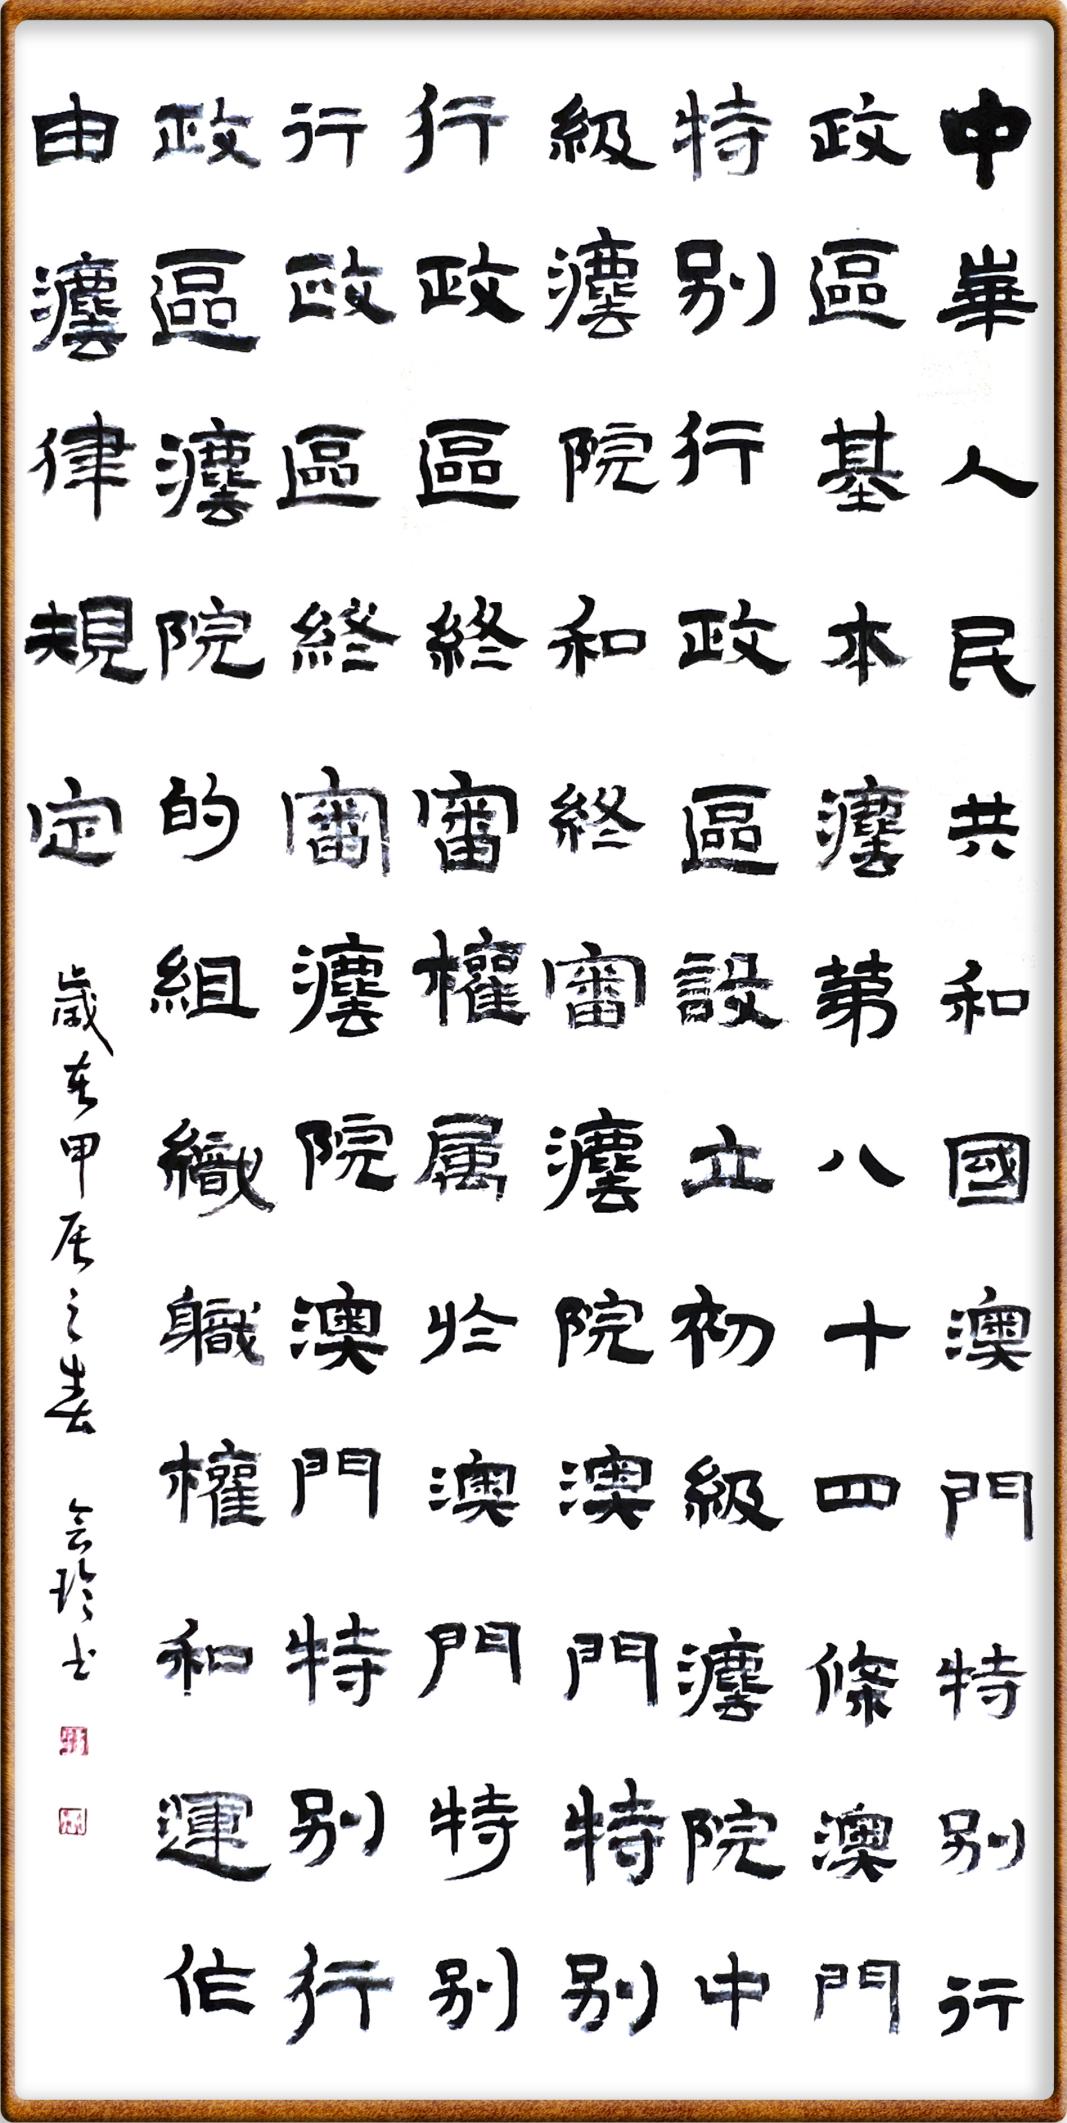 中華人民共和國澳門特別行
政區基本灋第八十四條澳門
特別行政區設立初級灋院中
級灋院和終審灋院澳門特別
行政區終審權属於澳門特別
行政區終審灋院澳門特別行
政區灋院的組織職權和運作
由灋律規定
歲在甲辰之春 會玲书